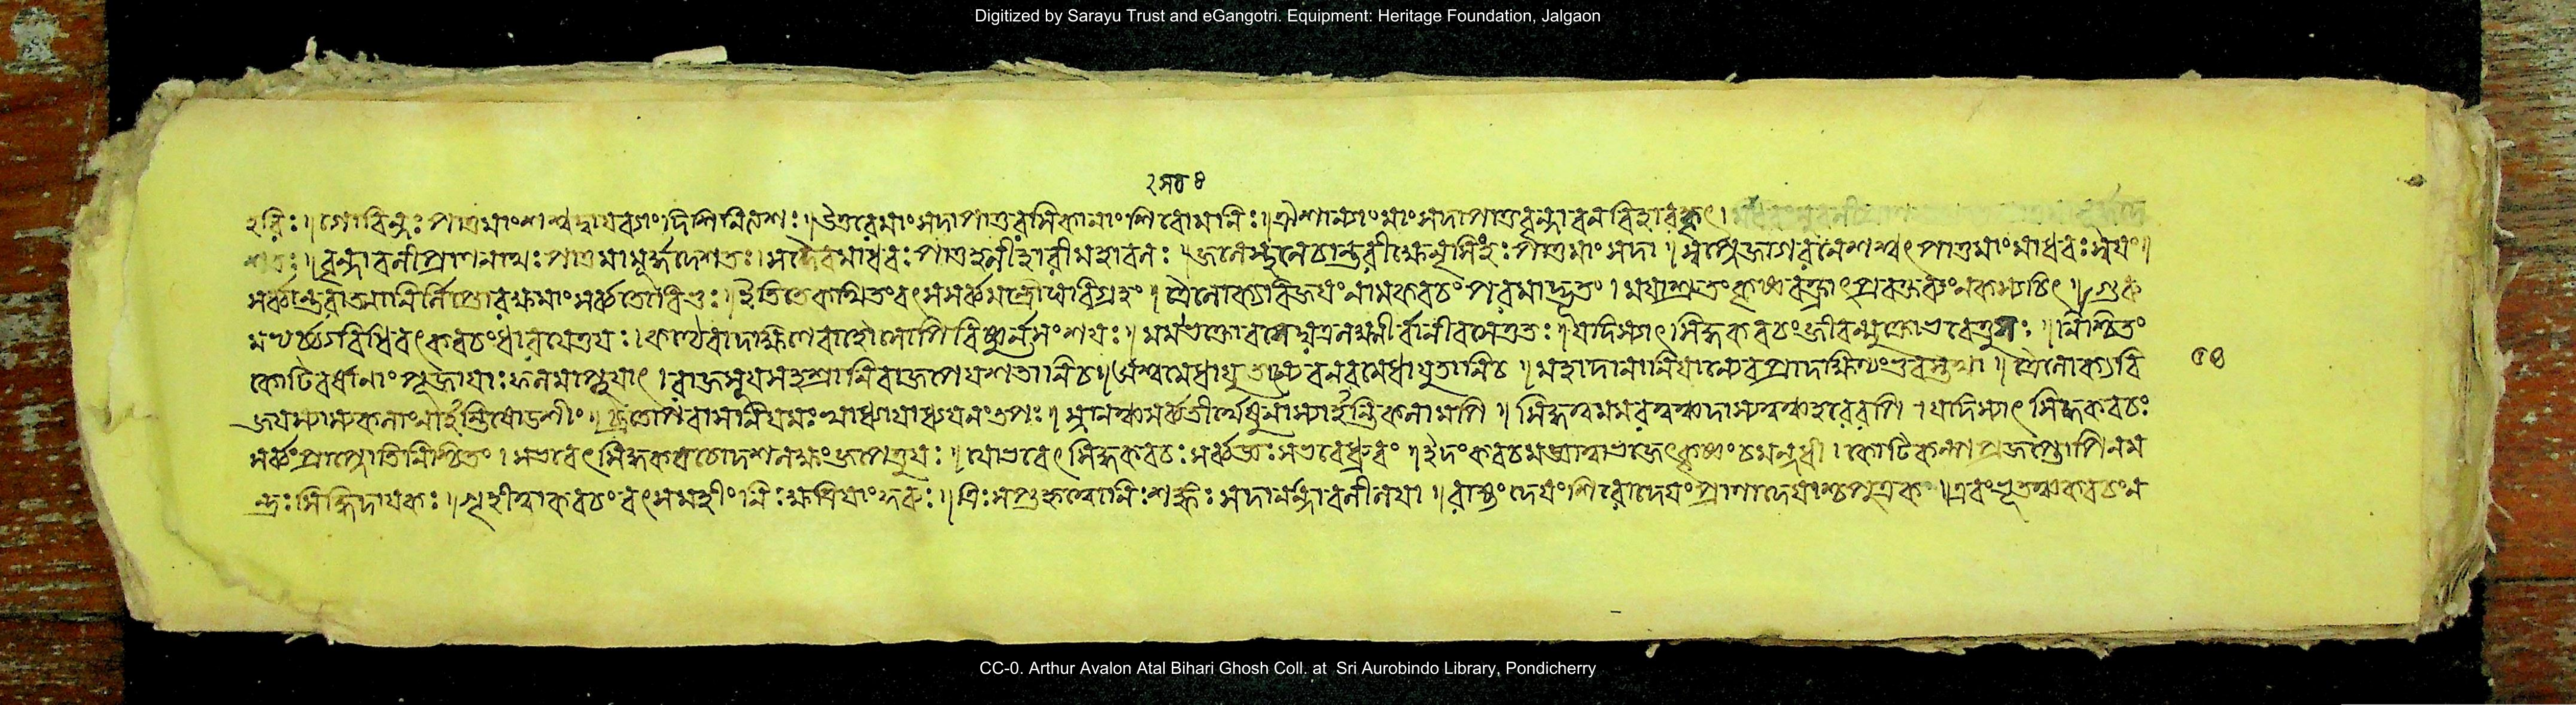 Digitized by Sarayu Trust and eGangotri. Equipment: Heritage Foundation, Jalgaon
হরিঃ। গোবিন্দঃ পাতু মাং শশ্বদ্বায়ব্যাং দিশি নিত্যশঃ। উত্তরে মাং সদা পাতু রসিকানাং শিরোমণিঃ। ঐশান্যাং মাং সদা পাতু বৃন্দাবনবিহারকৃৎ।
বৃন্দাবনীপ্রাণনাথঃ পাতু মামূর্দ্ধদেশতঃ। সদৈব মাধবঃ পাতু বলীহারী মহাবলঃ। জলে স্থলে চান্তরীক্ষে নৃসিংহঃ পাতু মাং সদা। স্বপ্নে জাগরণে শশ্বৎ পাতু মাং মাধবঃ স্বয়ং।
সর্ব্বান্তরাত্মা নির্লিপ্তো রক্ষ মাং সর্ব্বতো বিভুঃ। ইতি তে কথিতং বৎস সর্ব্বমন্ত্রৌঘবিগ্রহং। ত্রৈলোক্যবিজয়ং নাম কবচং পরমাদ্ভুতং। ময়া শ্রুতং কৃষ্ণবক্ত্রাৎ প্রবক্তব্যং ন কস্যচিৎ। গুরু
মভ্যর্চ্চ্য বিধিবৎ কবচং ধারয়েত্তু যঃ। কণ্ঠে বা দক্ষিণে বাহৌ সোপি বিষ্ণুর্ন সংশয়ঃ। স চ ভক্তো বসেদ্যত্র লক্ষ্মীর্বাণী বসেত্ততঃ। যদি স্যাৎ সিদ্ধকবচং জীবন্মুক্তো ভবেত্তু সঃ। নিশ্চিতং
কোটিবর্ষাণাং পূজায়াঃ ফলমাপ্নুয়াৎ। রাজসূয়সহস্রাণি বাজপেয়শতানি চ। অশ্বমেধাযুতান্যেব নরমেধাযুতানি চ। মহাদানানি যান্যেব প্রাদক্ষিণ্যং ভুবস্তথা। ত্রৈলোক্যবি
জয়স্যাস্য কলাং নার্হন্তি ষোড়শীং। ব্রতোপবাসনিয়মং স্বাধ্যায়াধ্যয়নং তপঃ। স্নানঞ্চ সর্ব্বতীর্থেষু নাস্যার্হন্তি কলামপি। সিদ্ধত্বমমরত্বঞ্চ দাসত্বঞ্চ হরেরপি। যদি স্যাৎ সিদ্ধকবচঃ
সর্ব্বং প্রাপ্নোতি নিশ্চিতং। স ভবেৎ সিদ্ধকবচো দশলক্ষং জপেত্তু যঃ। যো ভবেৎ সিদ্ধকবচঃ সর্ব্বজ্ঞঃ স ভবেদ্ধ্রুবং। ইদং কবচমজ্ঞাত্বা ভজেৎ কৃষ্ণং চ মন্দধী। কোটিকল্পপ্রজপ্তোপি ন ম
ন্ত্রঃ সিদ্ধিদায়কঃ। গৃহীত্বা কবচং বৎস মহীং নিঃক্ষত্রিয়াং কুরু। ত্রিঃসপ্তকৃত্বো নিঃশঙ্কঃ সদানন্দাবলীলয়া। রাজ্যং দেয়ং শিরো দেয়ং প্রাণা দেয়াশ্চ পুত্রক। এবংভূতঞ্চ কবচং ন
CC-0. Arthur Avalon Atal Bihari Ghosh Coll. at Sri Aurobindo Library, Pondicherry